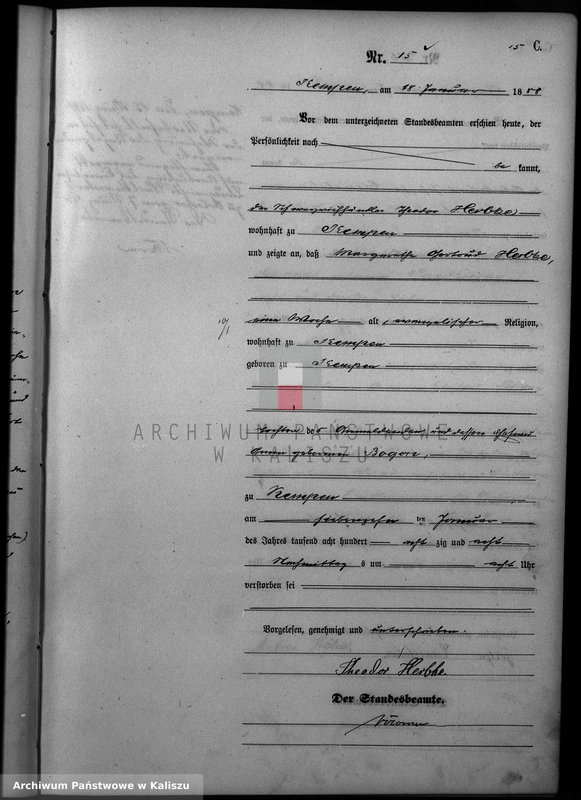 15 C.
Nr. 15
Kempen, am 18 Januar 1888
Vor dem unterzeichneten Standesbeamten erschien heute, der
Persönlichkeit nach
be kannt,
der Theodor Herbke
wohnhaft zu Kempen
und zeigte an, daß Margarethe Gertrud Herbke,
eine Woche alt, evangelischer Religion,
wohnhaft zu Kempen
geboren zu Kempen
Tochter des Anmeldenden, und dessen Ehefrau
geborenen
zu Kempen
am siebenzehn ten Januar
des Jahres tausend acht hundert acht zig und acht
Nachmittag s um acht Uhr
verstorben sei
Vorgelesen, genehmigt und unterschrieben.
Theodor Herbke.
Der Standesbeamte.
ARCHIWUM PAŃSTWOWE
W KALISZU
Archiwum Państwowe w Kaliszu